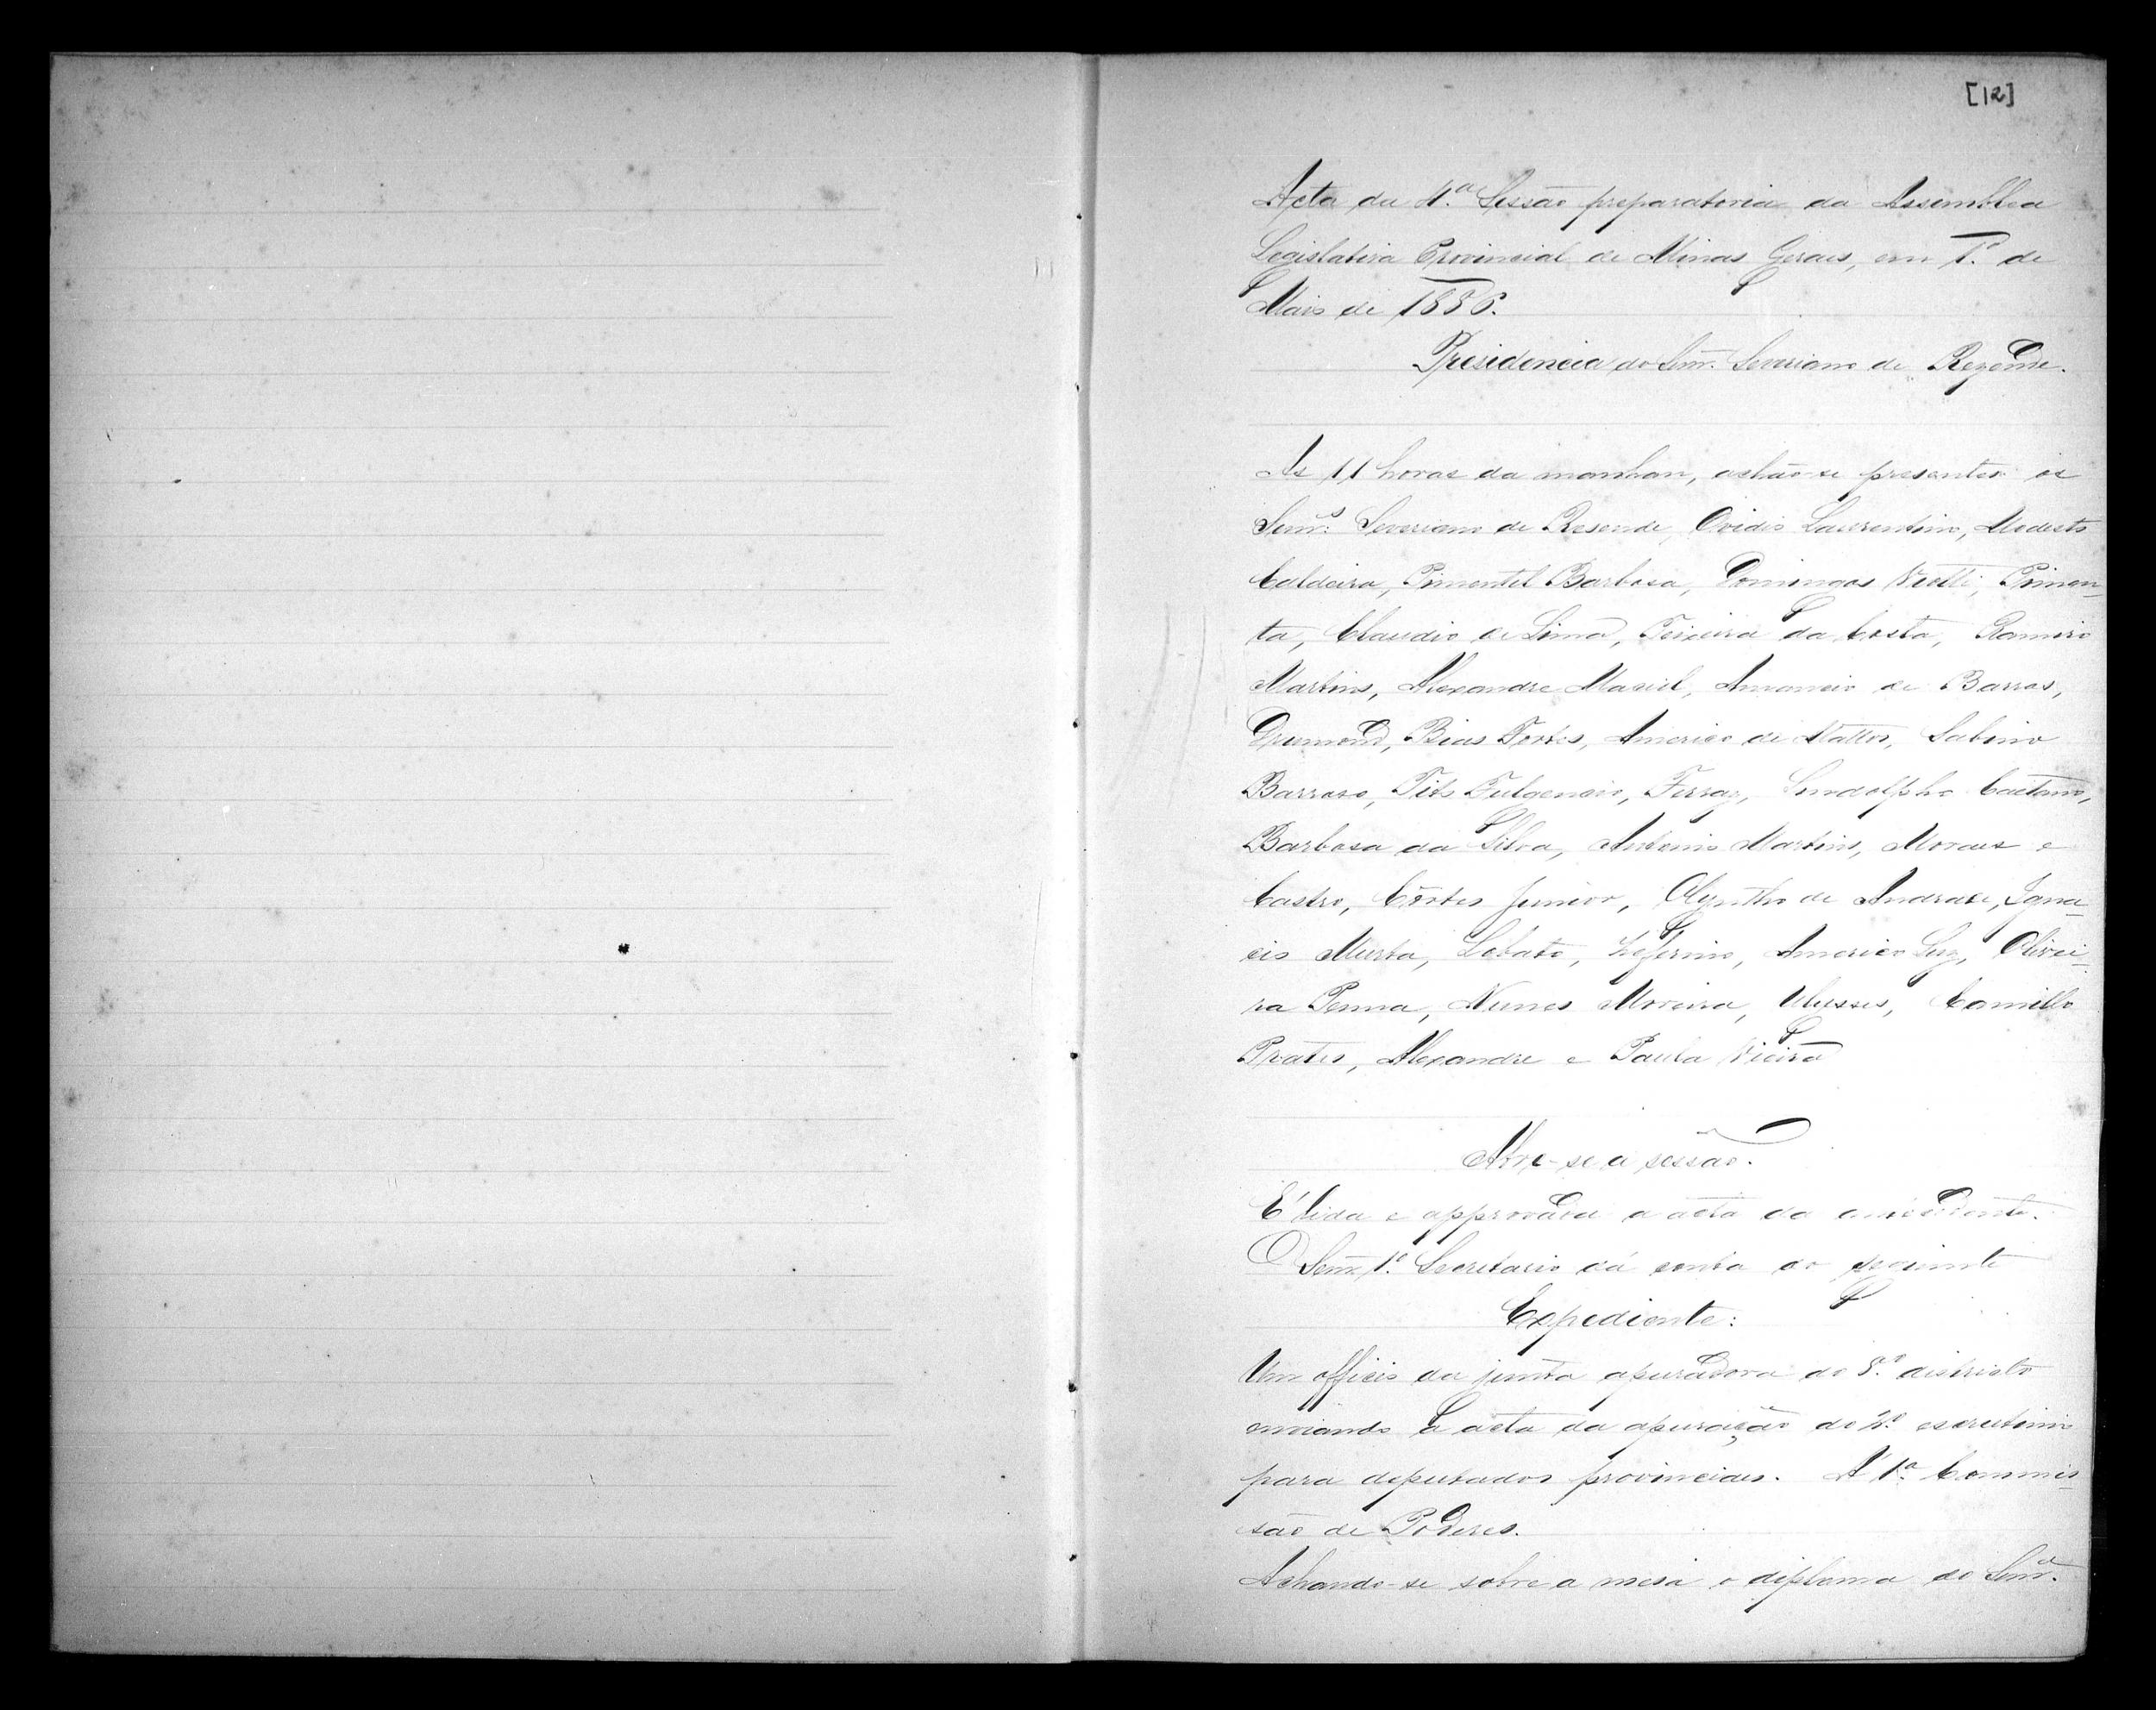 [12]
Acta da 4.ª Sessão preparatoria da Assemblea
Legislativa Provincial de Minas Geraes, em 1.º de
Maio de 1886.
Presidencia do Senr. Severiano de Rezende.
As 11 horas da manhan, achão-se presentes os
Senr.s Severiano de Resende, Ovidio Laurentino, Modesto
Caldeira, Pimentel Barbosa, Domingos Viotti, Pimen-
ta, Claudio de Lima, Teixeira da Costa, Ramiro
Martins, Alexandre Maciel, Amancio de Barros,
Drumond, Bias Fortes, Americo de Mattos, Sabino
Barroso, Tito Fulgencio, Ferraz, Lindolpho Caetano,
Barbosa da Silva, Antonio Martins, Moraes e
Castro, Côrtes Junior, Olyntho de Andrade, Igna-
cio Murta, Lobato, Zeferino, Americo Luz, Olivei-
ra Penna, Nunes Moreira, Ulysses, Camillo
Prates, Alexandre e Paula Vieira
Abre-se a sessão.
E' lida e approvada a acta da antecedente.
O Senr. 1.º Secretario dá conta do seguinte
Expediente:
Um officio da junta apuradora do 8.º districto
enviando a acta da apuração do 2.º escrutinio
para deputados provinciaes. A' 1.ª Commis-
são de Poderes.
Achando-se sobre a mesa o diploma do Senr.